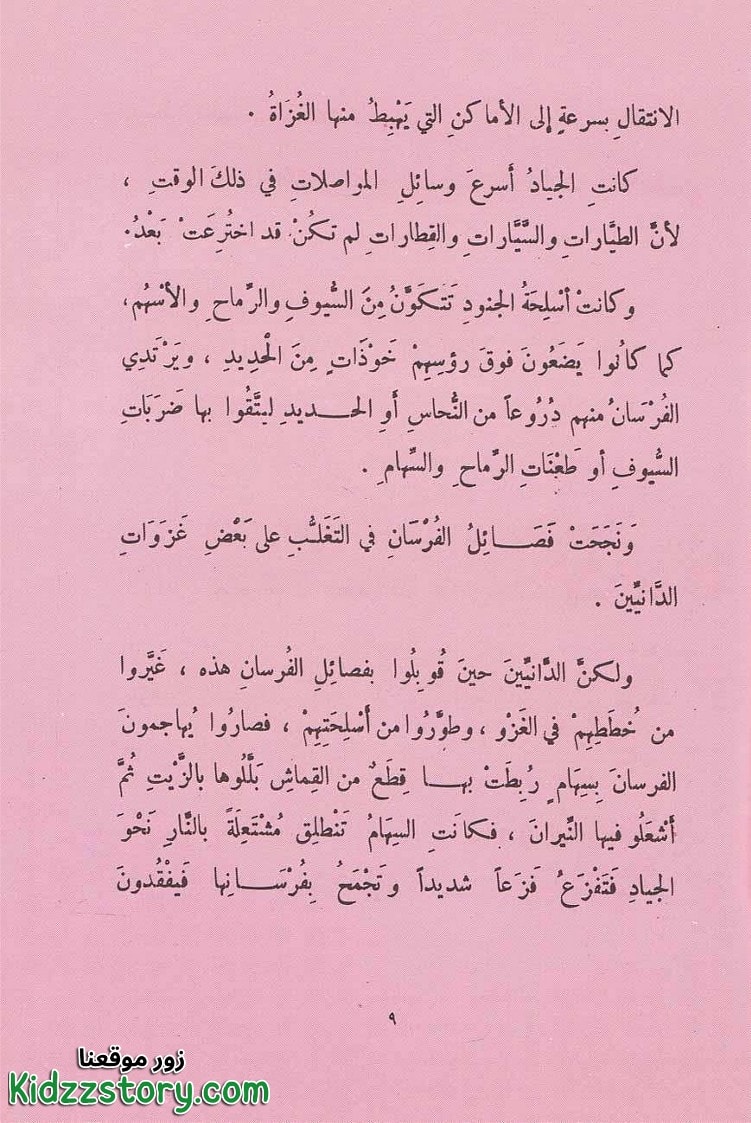 الانتقالِ بسرعةٍ إلى الأماكنِ التي يَهْبِطُ منها الغُزَاةُ .
كانتِ الجيادُ أسرعَ وسائلِ المواصلاتِ في ذلكَ الوقتِ ،
لأنَّ الطيَّاراتِ والسَّيَّاراتِ والقِطاراتِ لم تكُنْ قد اختُرِعَتْ بَعْدُ.
وكانتْ أسْلِحَةُ الجنودِ تَتكوَّنُ مِنَ السُّيوفِ والرِّماحِ والأسْهُمِ،
كما كانُوا يَضَعُونَ فوقَ رؤسِهِمْ خَوْذَاتٍ مِنَ الْحَدِيدِ ، ويَرْتدِي
الفُرْسَانُ منهم دُرُوعاً من النُّحاسِ أوِ الحــديدِ ليتَّقُوا بها ضَرَبَاتِ
السُّيوفِ أو طَعْنَاتِ الرِّماحِ والسِّهامِ .
وَنَجَحَتْ فَصَـائِلُ الفُرْسَانِ في التَغَلُّبِ على بَعْضِ غَزَوَاتِ
الدَّانيِّينَ .
ولكنَّ الدَّانيِّينَ حينَ قُوبِلُوا بفصائلِ الفُرسانِ هذه ، غَيَّروا
من خُططِهِمْ في الغَزْو ، وطوَّرُوا من أَسْلِحَتِهِمْ ، فصارُوا يُهاجمونَ
الفرسانَ بِسِهَامٍ رُبِطَتْ بهــا قِطَعٌ من القِماشِ بَلَّلُوها بالزَّيْتِ ثُمَّ
أشْعَلُو فيها النِّيرانَ ، فكانَتِ السِهَامُ تَنْطلِق مُشْتَعِلَةً بالنَّارِ نَحْوَ
الجيادِ فَتَفْزَعُ فَزَعاً شديداً وتَجْمَحُ بِفُرْسَــانِها فَيفْقُدونَ
٩
زور موقعنا
Kidzzstory.com